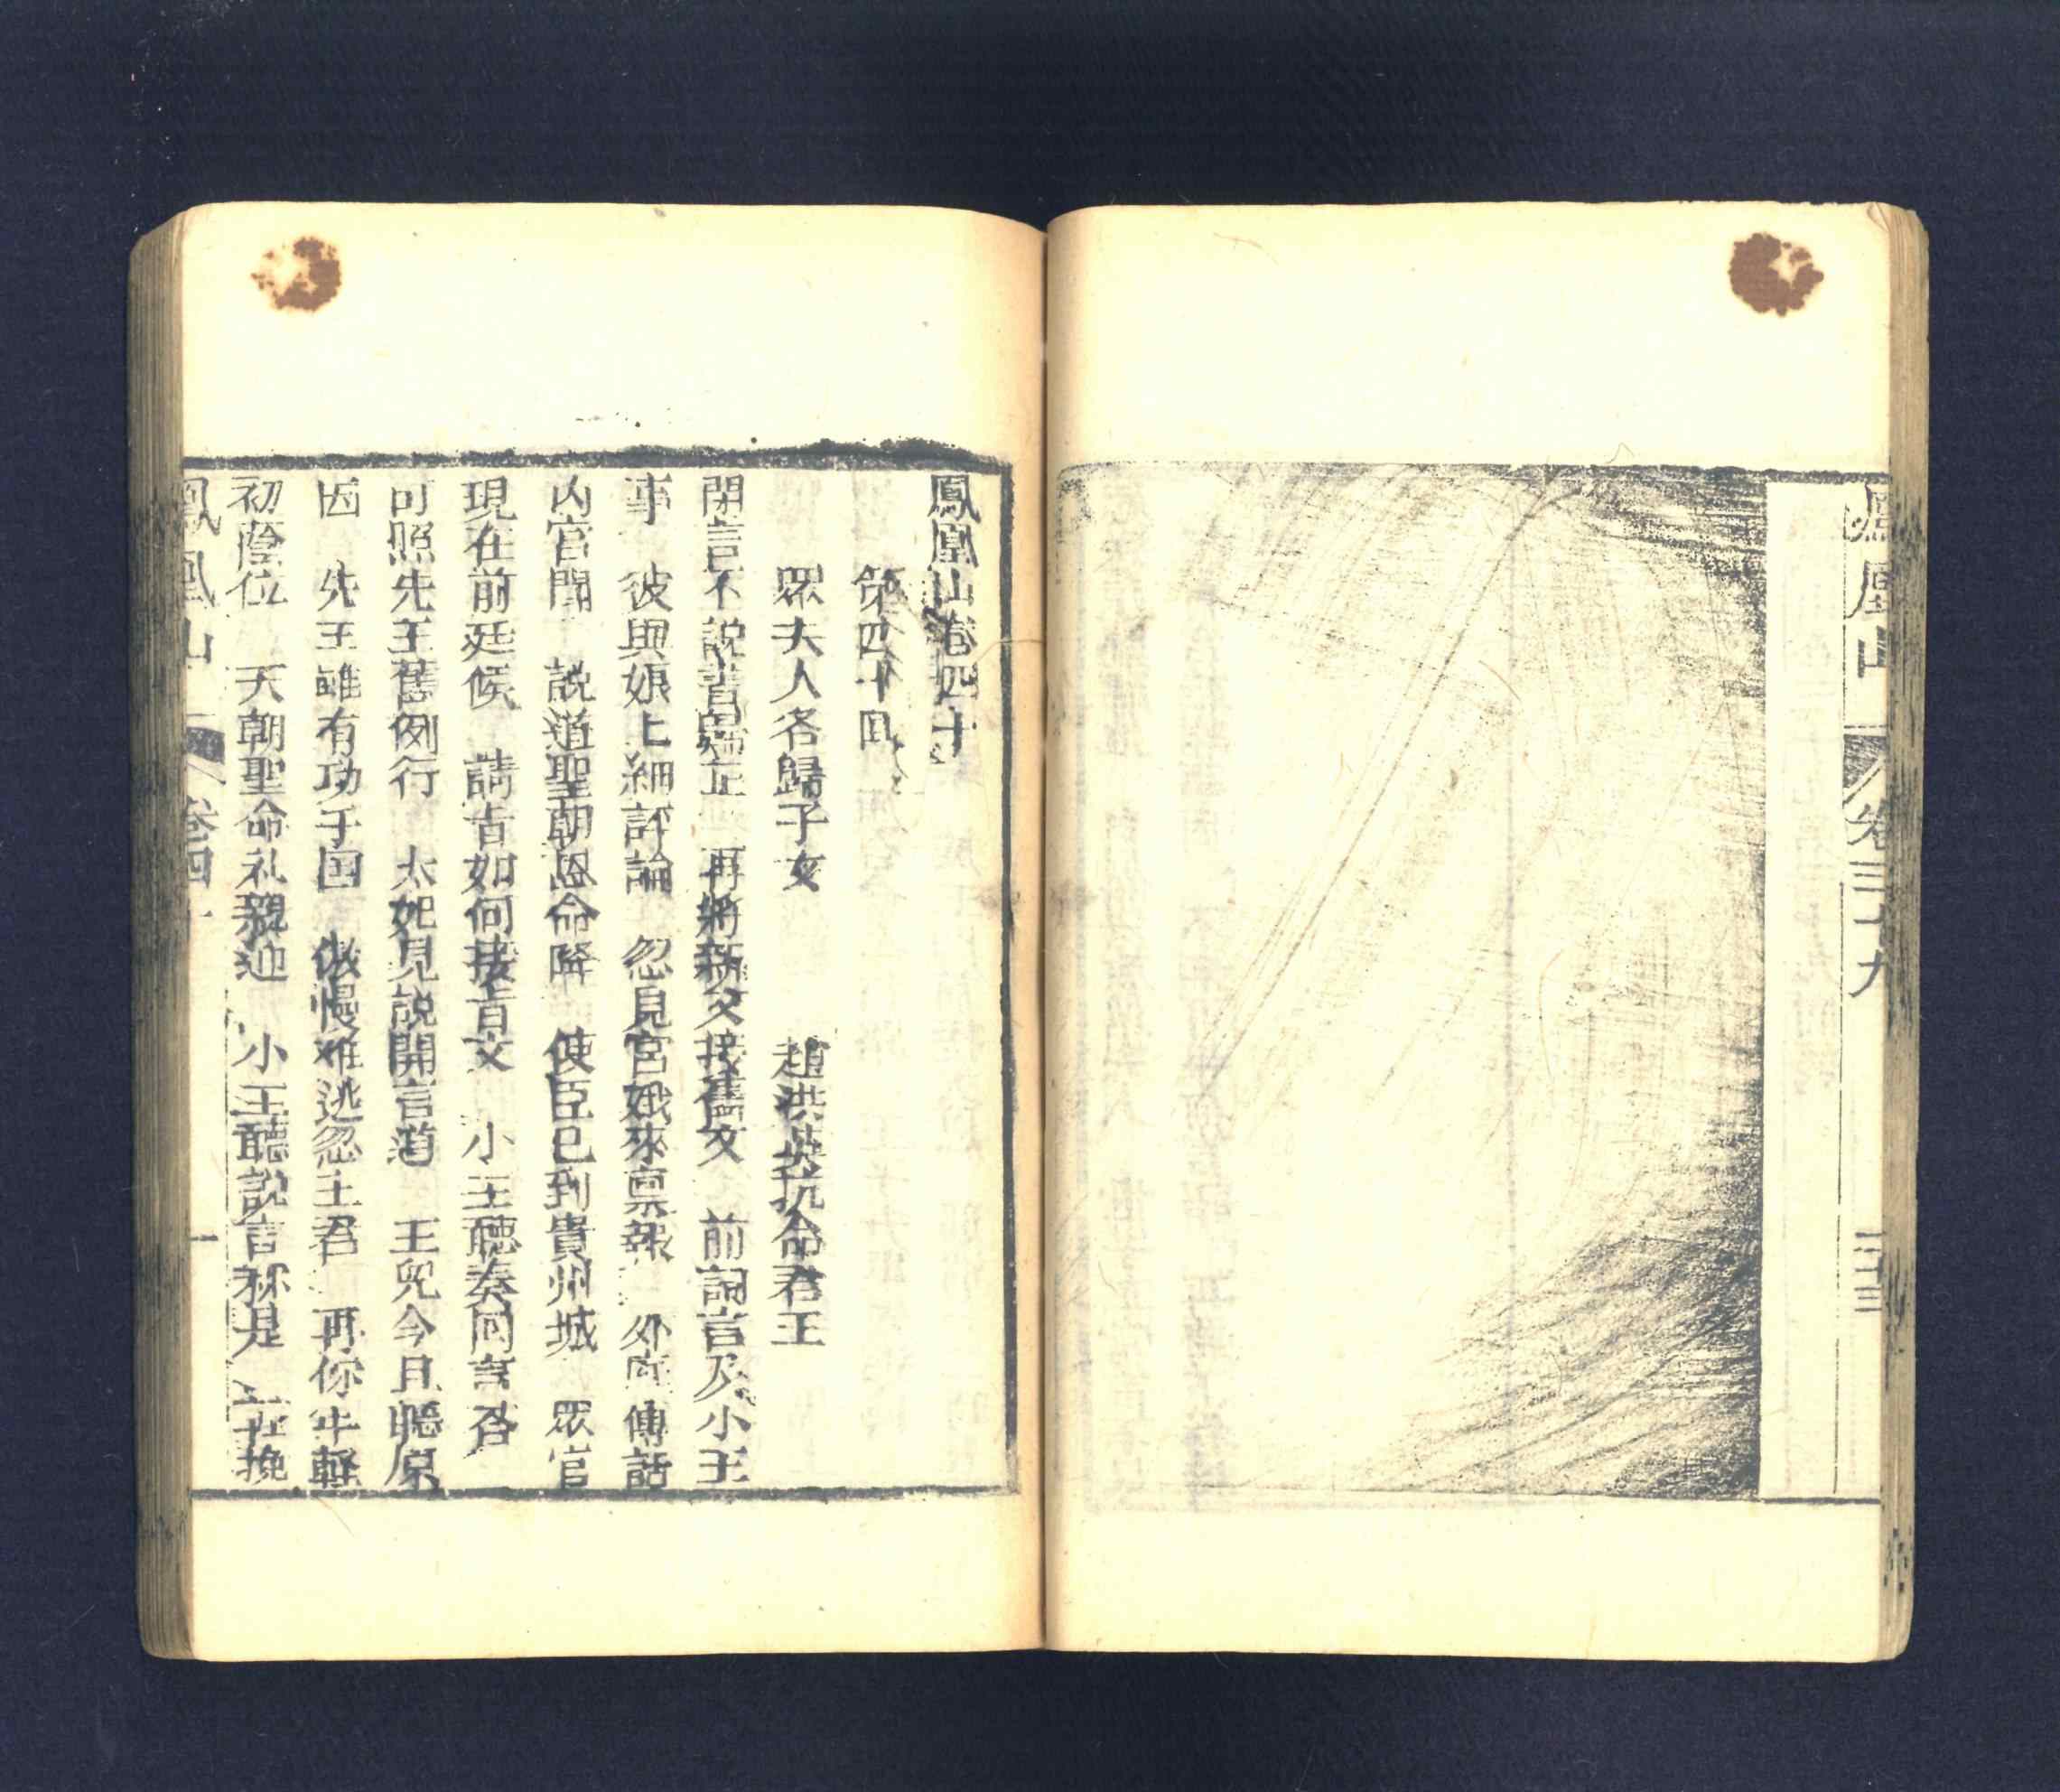 鳳凰山
卷三十九
三十三
鳳凰山卷四十
第四十回
眾夫人各歸子女 趙洪英抗命君王
閑言不說書歸正 再將新文接舊文 前詞言及小王
事 彼與娘上細評論 忽見宮娥來稟報 外庭傳話
內官聞 說道聖朝恩命降 使臣已到貴州城 眾官
現在前廷候 請旨如何接旨文 小王聽奏回言答
可照先王舊例行 太妃見說開言道 王兒今且聽原
因 先王雖有功于国 傲慢难逃忽主君 再你年輕
初蔭位 天朝聖命礼親迎 小王聽說言称是 挽
鳳凰山 卷四十 一